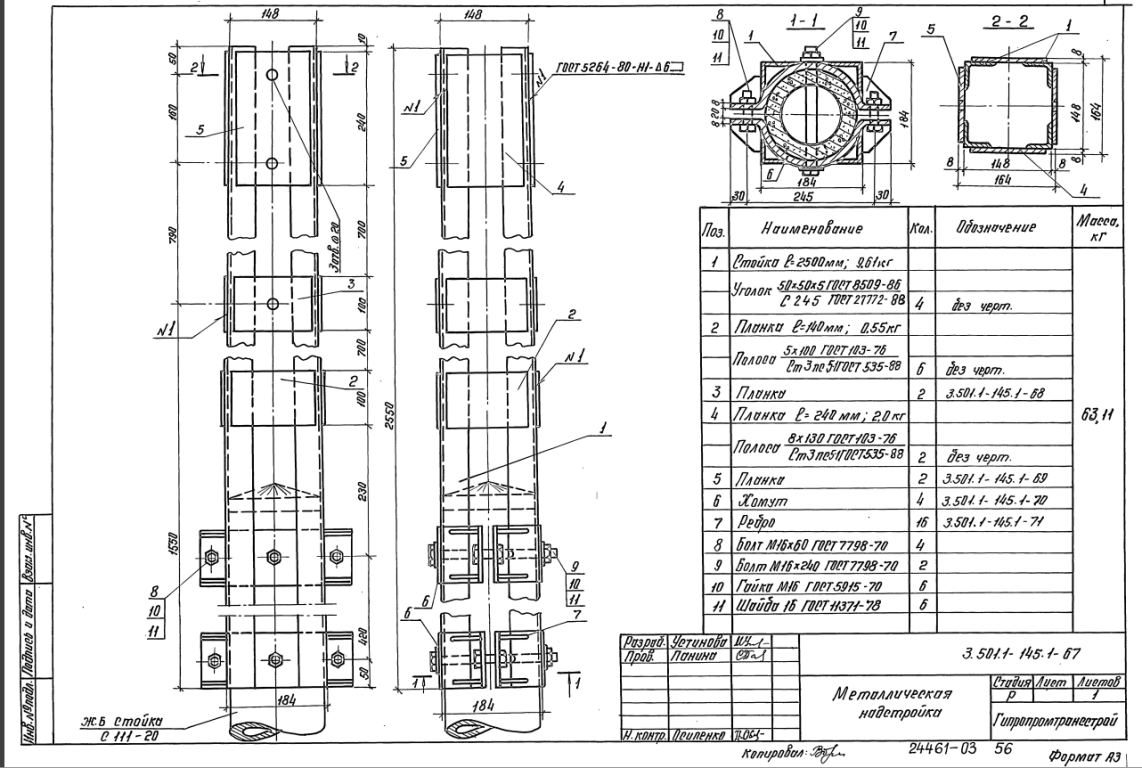 148
148
1-1
2-2
8
10
11
1
9
10
11
7
5
1
60
10
2
2
160
240
5
790
700
Зотв. ⌀ 20
3
100
N1
700
2
100
230
1550
8
10
11
420
50
184
Ж.Б стойка
С 111-20
ГОСТ 5264-80-Н1-Δ6
N1
N1
5
4
2550
2
N1
1
9
10
11
6
6
7
1
1
184
8 20 8
184
6
184
30
245
30
8
148
164
8
8
148
8
164
4
Поз.
Наименование
Кол.
Обозначение
Масса, кг
1 Стойка ℓ=2500мм; 9.61кг
Уголок 50×50×5 ГОСТ 8509-86
С 245 ГОСТ 27772-88
4 без черт.
2 Планка ℓ=140мм; 0.55кг
Полоса 5×100 ГОСТ 103-76
Ст3пс5ГОСТ 535-88
6 без черт.
3 Планка 2 3.501.1-145.1-68
4 Планка ℓ=240мм; 2,0кг
63,11
Полоса 8×130 ГОСТ 103-76
Ст3пс5ГОСТ 535-88
2 без черт.
5 Планка 2 3.501.1-145.1-69
6 Хомут 4 3.501.1-145.1-70
7 Ребро 16 3.501.1-145.1-71
8 Болт М16×60 ГОСТ 7798-70 4
9 Болт М16×240 ГОСТ 7798-70 2
10 Гайка М16 ГОСТ 5915-70 6
11 Шайба 16 ГОСТ 11371-78 6
Разраб. Устинова
Пров. Панина
Н.контр. Осипенко
3.501.1-145.1-67
Металлическая
надстройка
Стадия Лист Листов
Р 1
Гипропромтрансстрой
Инв.№подл. Подпись и дата Взам.инв.№
Копировал:
24461-03 56
Формат А3